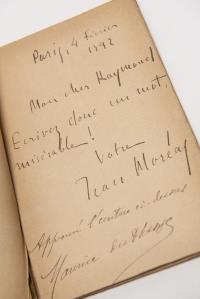 Paris, 4 février
1892
Mon cher Raymond
Ecrivez donc un mot,
misérable!
Votre
Jean Moréas
Approuvé l'écriture ci-dessus
Maurice